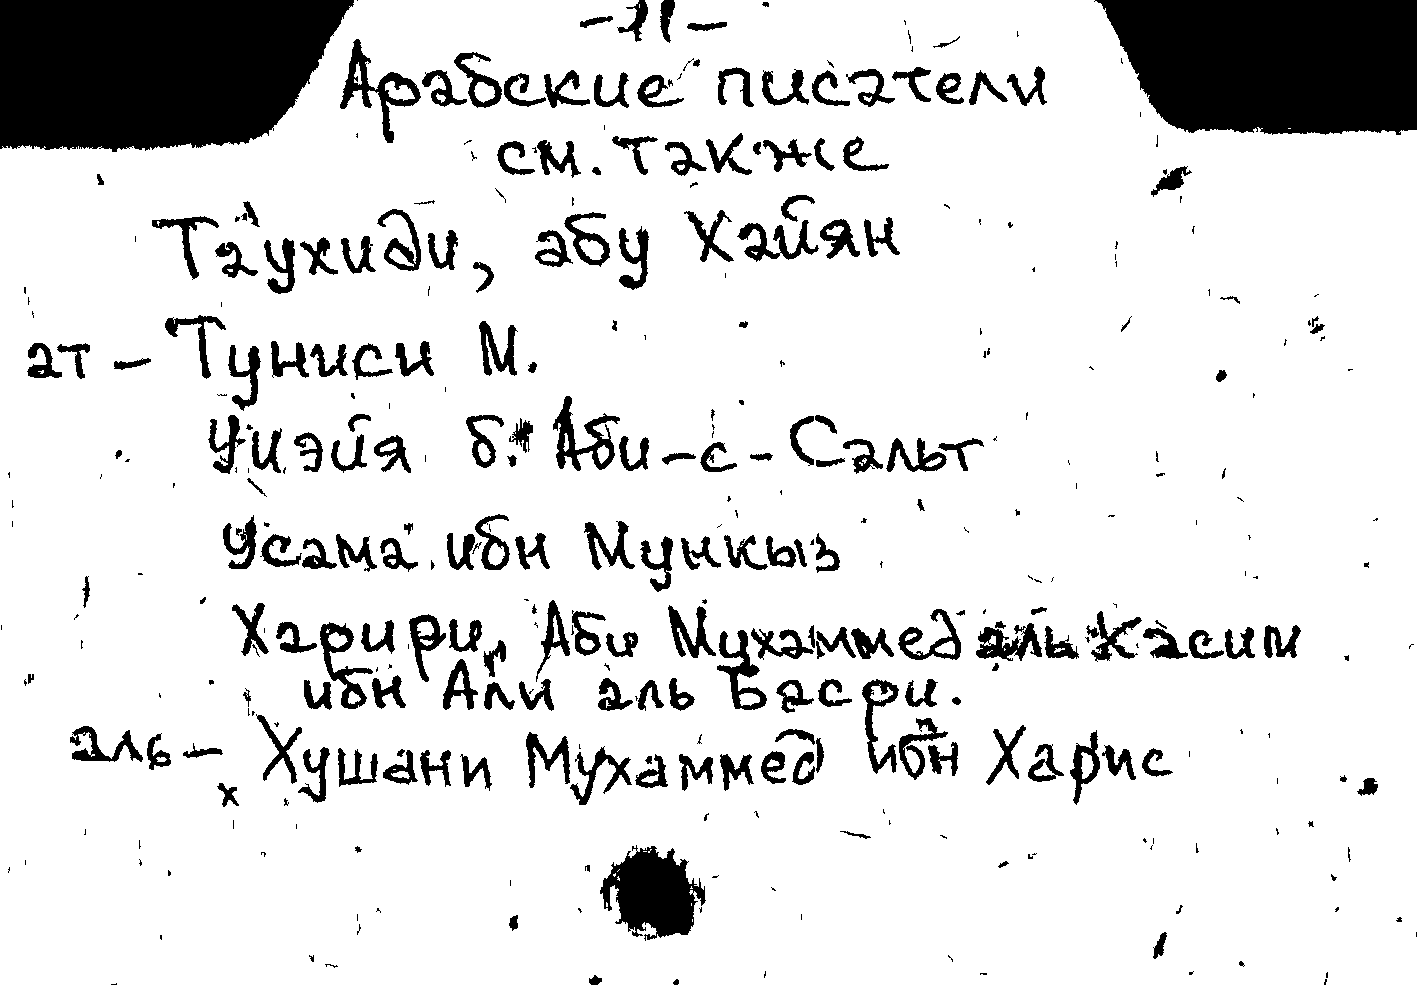 -11-
Арабские писатели
см. также
Таухиди, абу Хайян
ат - Туниси М.
Умэйя б. Аби-с-Сальт
Усама ибн Мункыз
Харири, Аби Мухаммед аль Касим
ибн Али аль Басри.
аль - Хушани Мухаммед ибн Харис
х